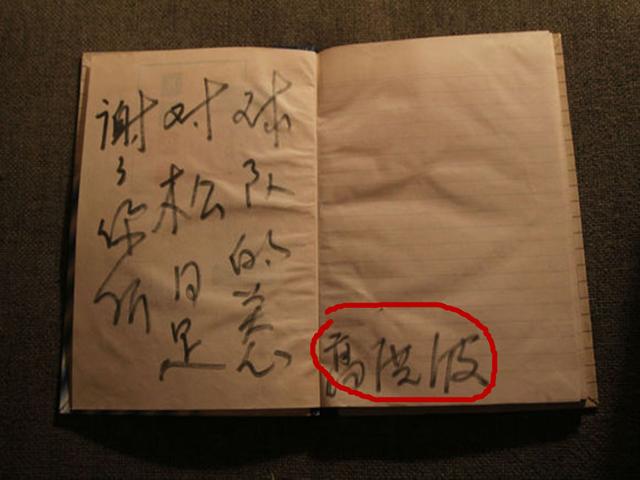 谢谢你们
对松日足
球队的关心
高洪波